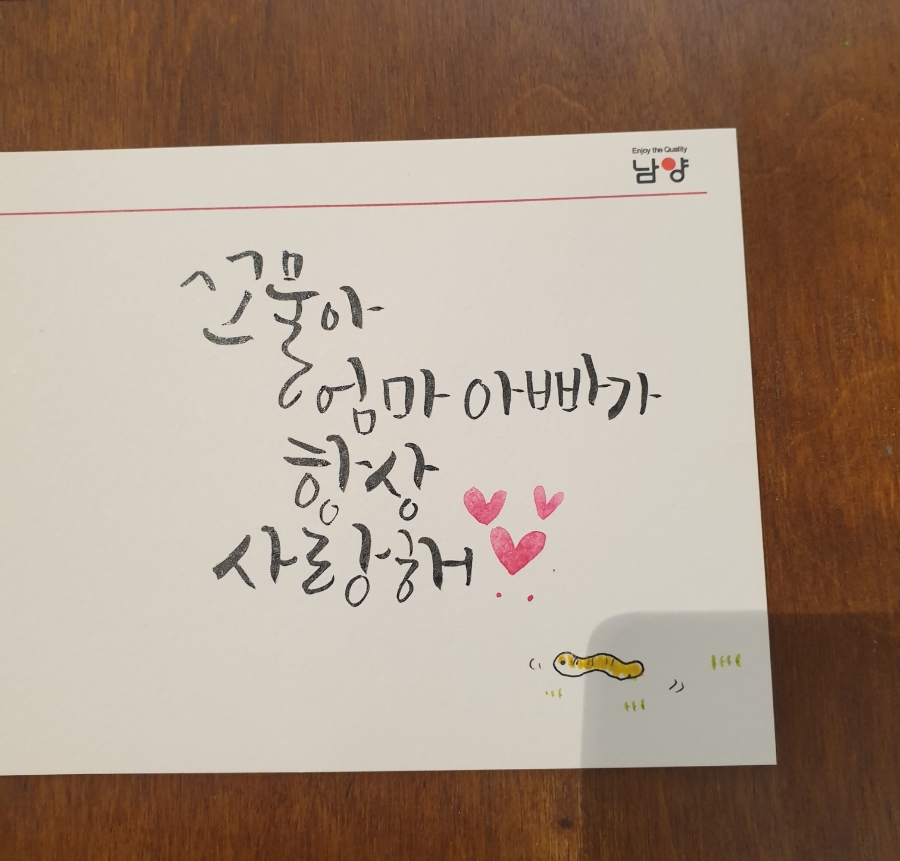 Enjoy the Quality
남양
꼬물아
엄마 아빠가
항상
사랑해